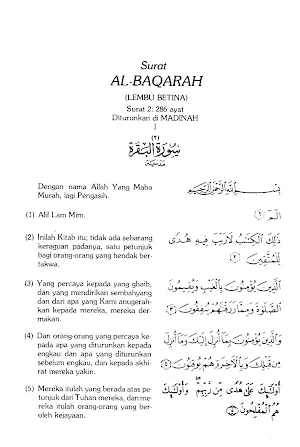 Surat
AL-BAQARAH
(LEMBU BETINA)
Surat 2: 286 ayat
Diturunkan di MADINAH
1
(٢)
سورة البقرة
مدنية
Dengan nama Allah Yang Maha
Murah, lagi Pengasih.
بسم الله الرحمن الرحيم
(1) Alif Lam Mim.
الم ﴿١﴾
(2) Inilah Kitab itu; tidak ada sebarang
keraguan padanya, satu petunjuk
bagi orang-orang yang hendak ber-
takwa.
ذلك الكتب لاريب فيه هدى
للمتقين ﴿٢﴾
(3) Yang percaya kepada yang ghaib,
dan yang mendirikan sembahyang
dan dari apa yang Kami anugerah-
kan kepada mereka, mereka der-
makan.
الذين يؤمنون بالغيب ويقيمون
الصلوة ومما رزقنهم ينفقون ﴿٣﴾
(4) Dan orang-orang yang percaya ke-
pada apa yang diturunkan kepada
engkau dan apa yang diturunkan
sebelum engkau, dan kepada akhi-
rat mereka yakin.
والذين يؤمنون بما أنزل إليك وما أنزل
من قبلك وبالآخرة هم يوقنون ﴿٤﴾
(5) Mereka itulah yang berada atas pe-
tunjuk dari Tuhan mereka, dan me-
reka itulah orang-orang yang ber-
oleh kejayaan.
أولئك على هدى من ربهم وأولئك
هم المفلحون ﴿٥﴾